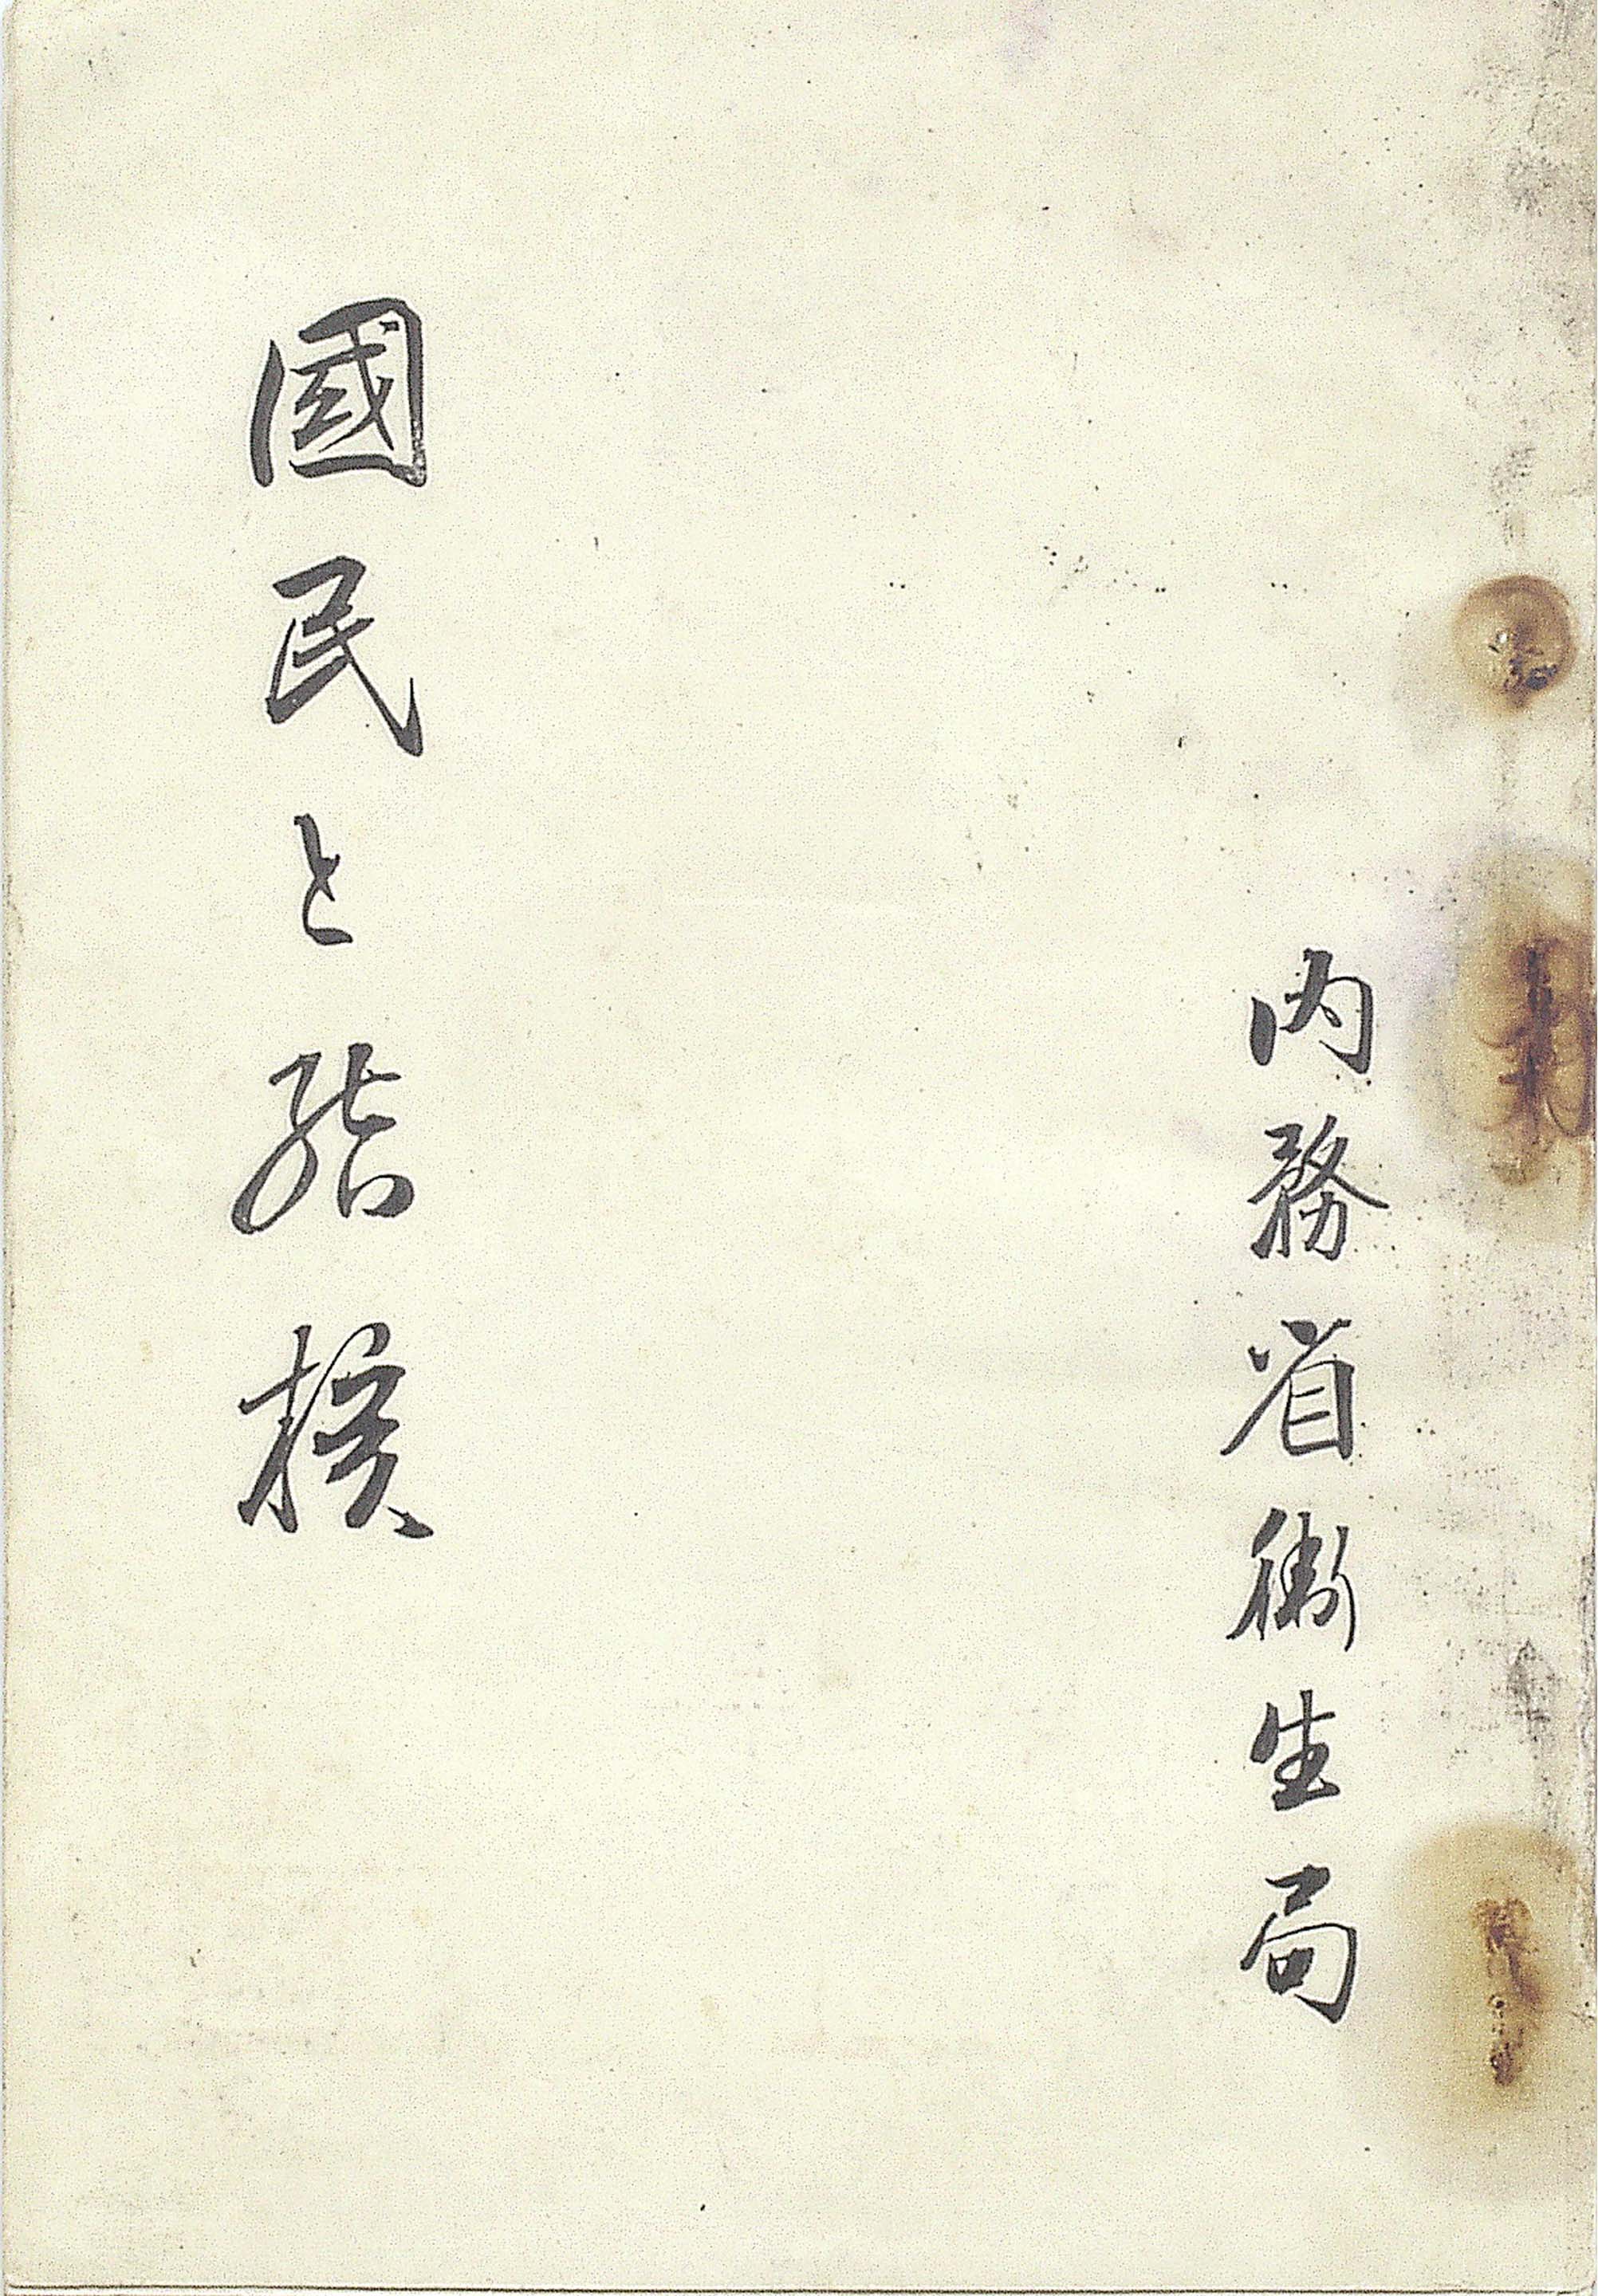 内務省衞生局
國民と結核